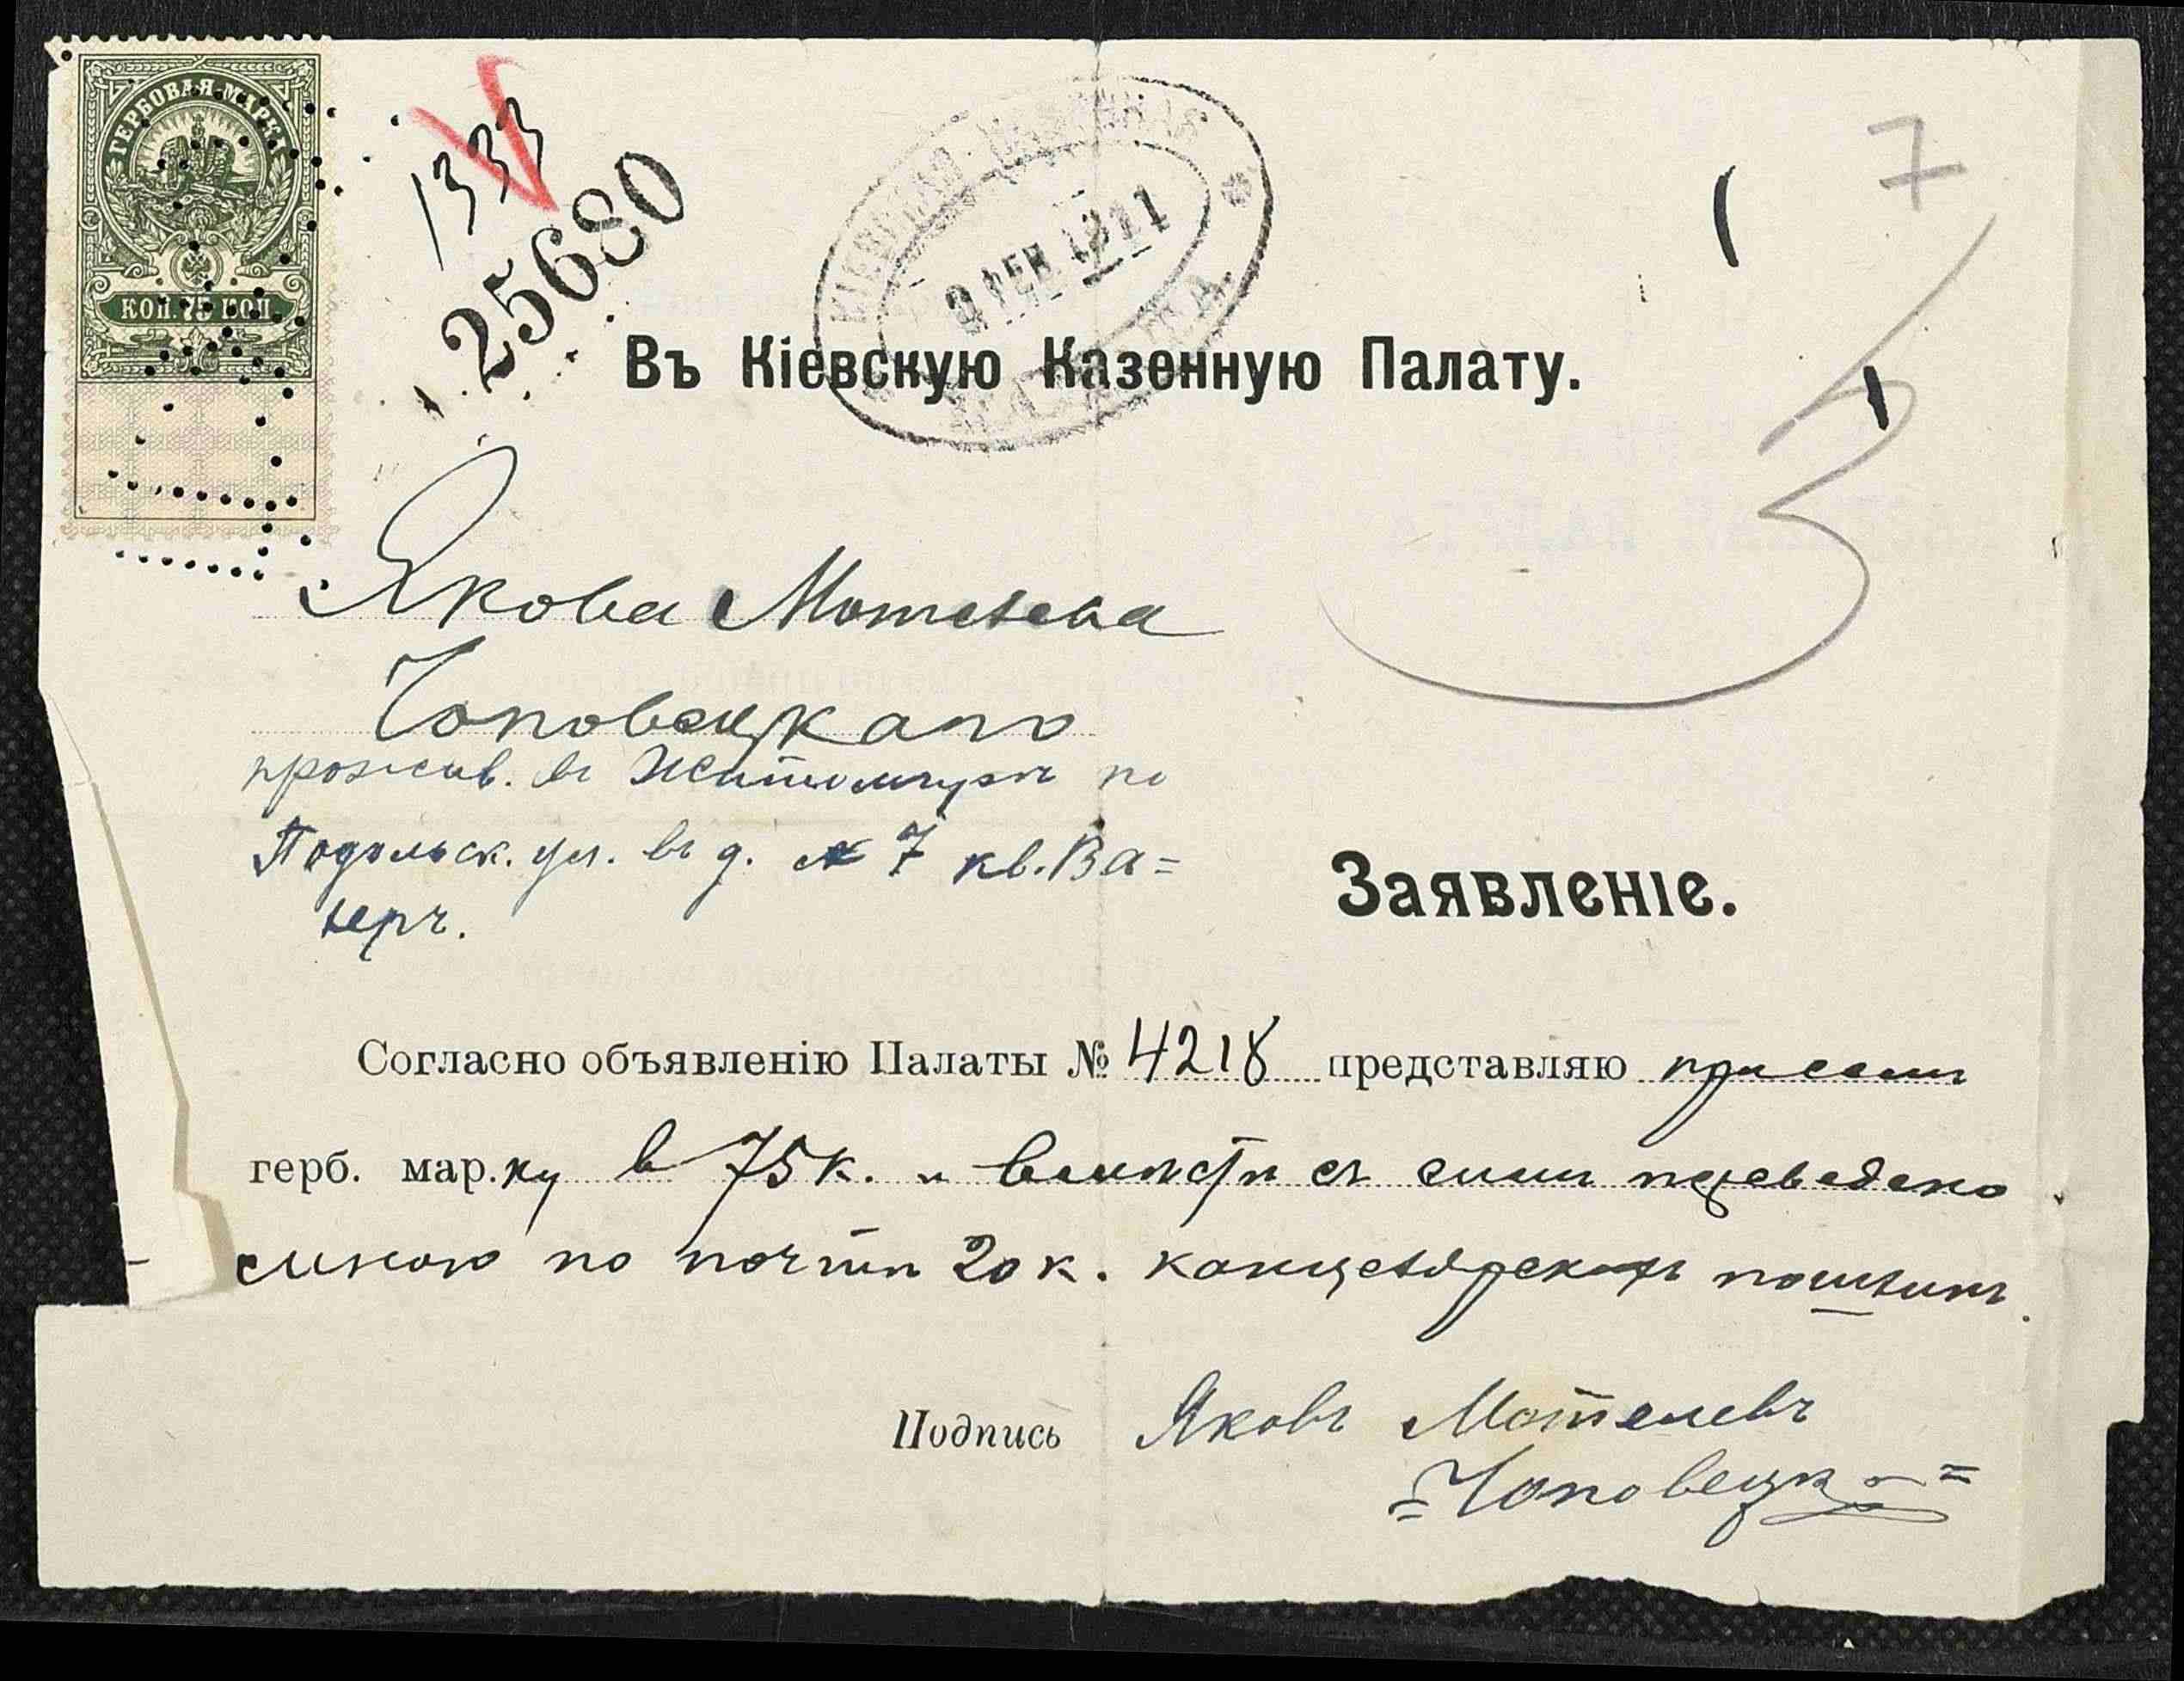 ГЕРБОВАЯ МАРКА
КОП. 75 КОП.
1333
25680
КІЕВСКАЯ КАЗЕННАЯ
9 ФЕВ 1911
ПАЛАТА
7
3
Въ Кіевскую Казенную Палату.
Якова Мотелева
Чоповецкаго
прожив. въ Житомирѣ по
Подольск. ул. въ д. № 7 кв. Ва=
леръ.
Заявленіе.
Согласно объявленію Палаты № 4218 представляю при семъ
герб. мар.ку в 75 к. и вмѣстѣ съ симъ переведено
мною по почтѣ 20 к. канцелярскихъ пошлинъ.
Подпись Яковъ Мотелевъ
=Чоповецк=